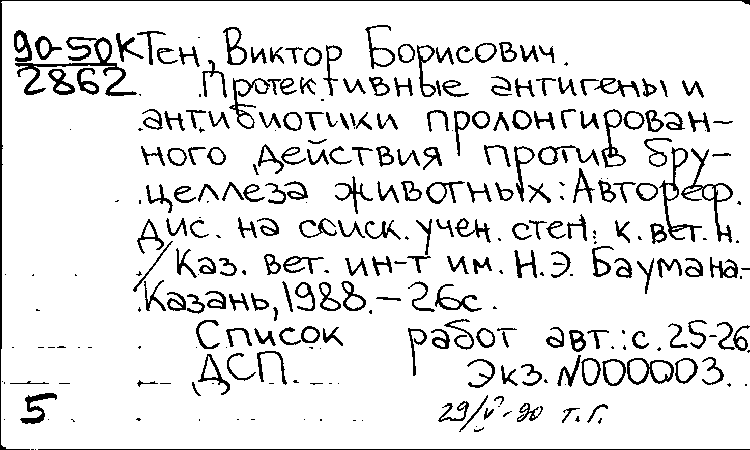 90-50К Тен, Виктор Борисович.
2862 Протективные антигены и
антибиотики пролонгирован-
ного действия против бру-
целлеза животных: Автореф.
дис. на соиск. учен. степ. к. вет. н.
/ Каз. вет. ин-т им. Н.Э. Баумана.-
Казань, 1988. - 26с.
Список работ авт.: с. 25-26
ДСП. Экз. N000003.
5 29/V-90 т.г.